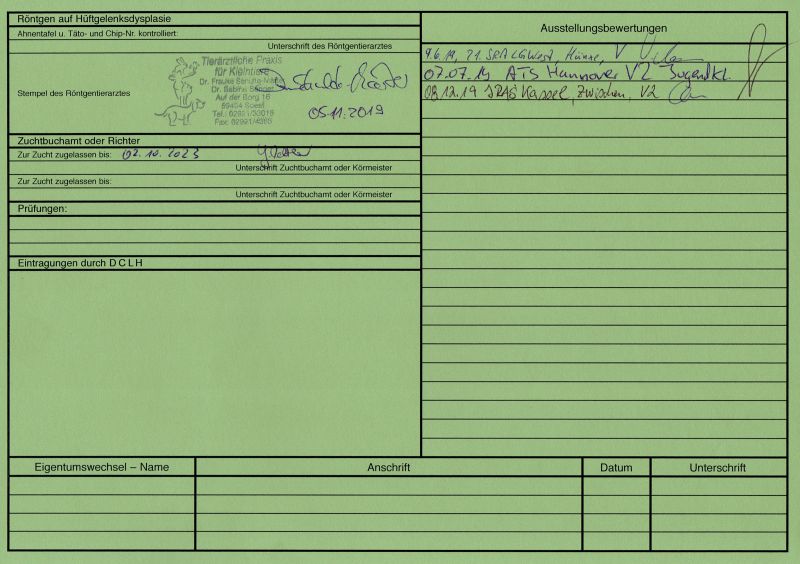 Röntgen auf Hüftgelenksdysplasie
Ahnentafel u. Täto- und Chip-Nr. kontrolliert:
Unterschrift des Röntgentierarztes
Tierärztliche Praxis
für Kleintiere
Dr. Frauke
Dr. Sabine
Auf der Borg 16
59494 Soest
Tel.: 02921/33016
Fax: 02921/4365
Stempel des Röntgentierarztes
05.11.2019
Zuchtbuchamt oder Richter
Zur Zucht zugelassen bis: 02.10.2023
Unterschrift Zuchtbuchamt oder Körmeister
Zur Zucht zugelassen bis:
Unterschrift Zuchtbuchamt oder Körmeister
Prüfungen:
Eintragungen durch D C L H
Ausstellungsbewertungen
9.6.19, 21. SRA LG West, Hünxe, V
07.07.19 ATS Hannover V2 Jugendkl.
08.12.19 IRAS Kassel, Zwischen, V2
Eigentumswechsel – Name Anschrift Datum Unterschrift